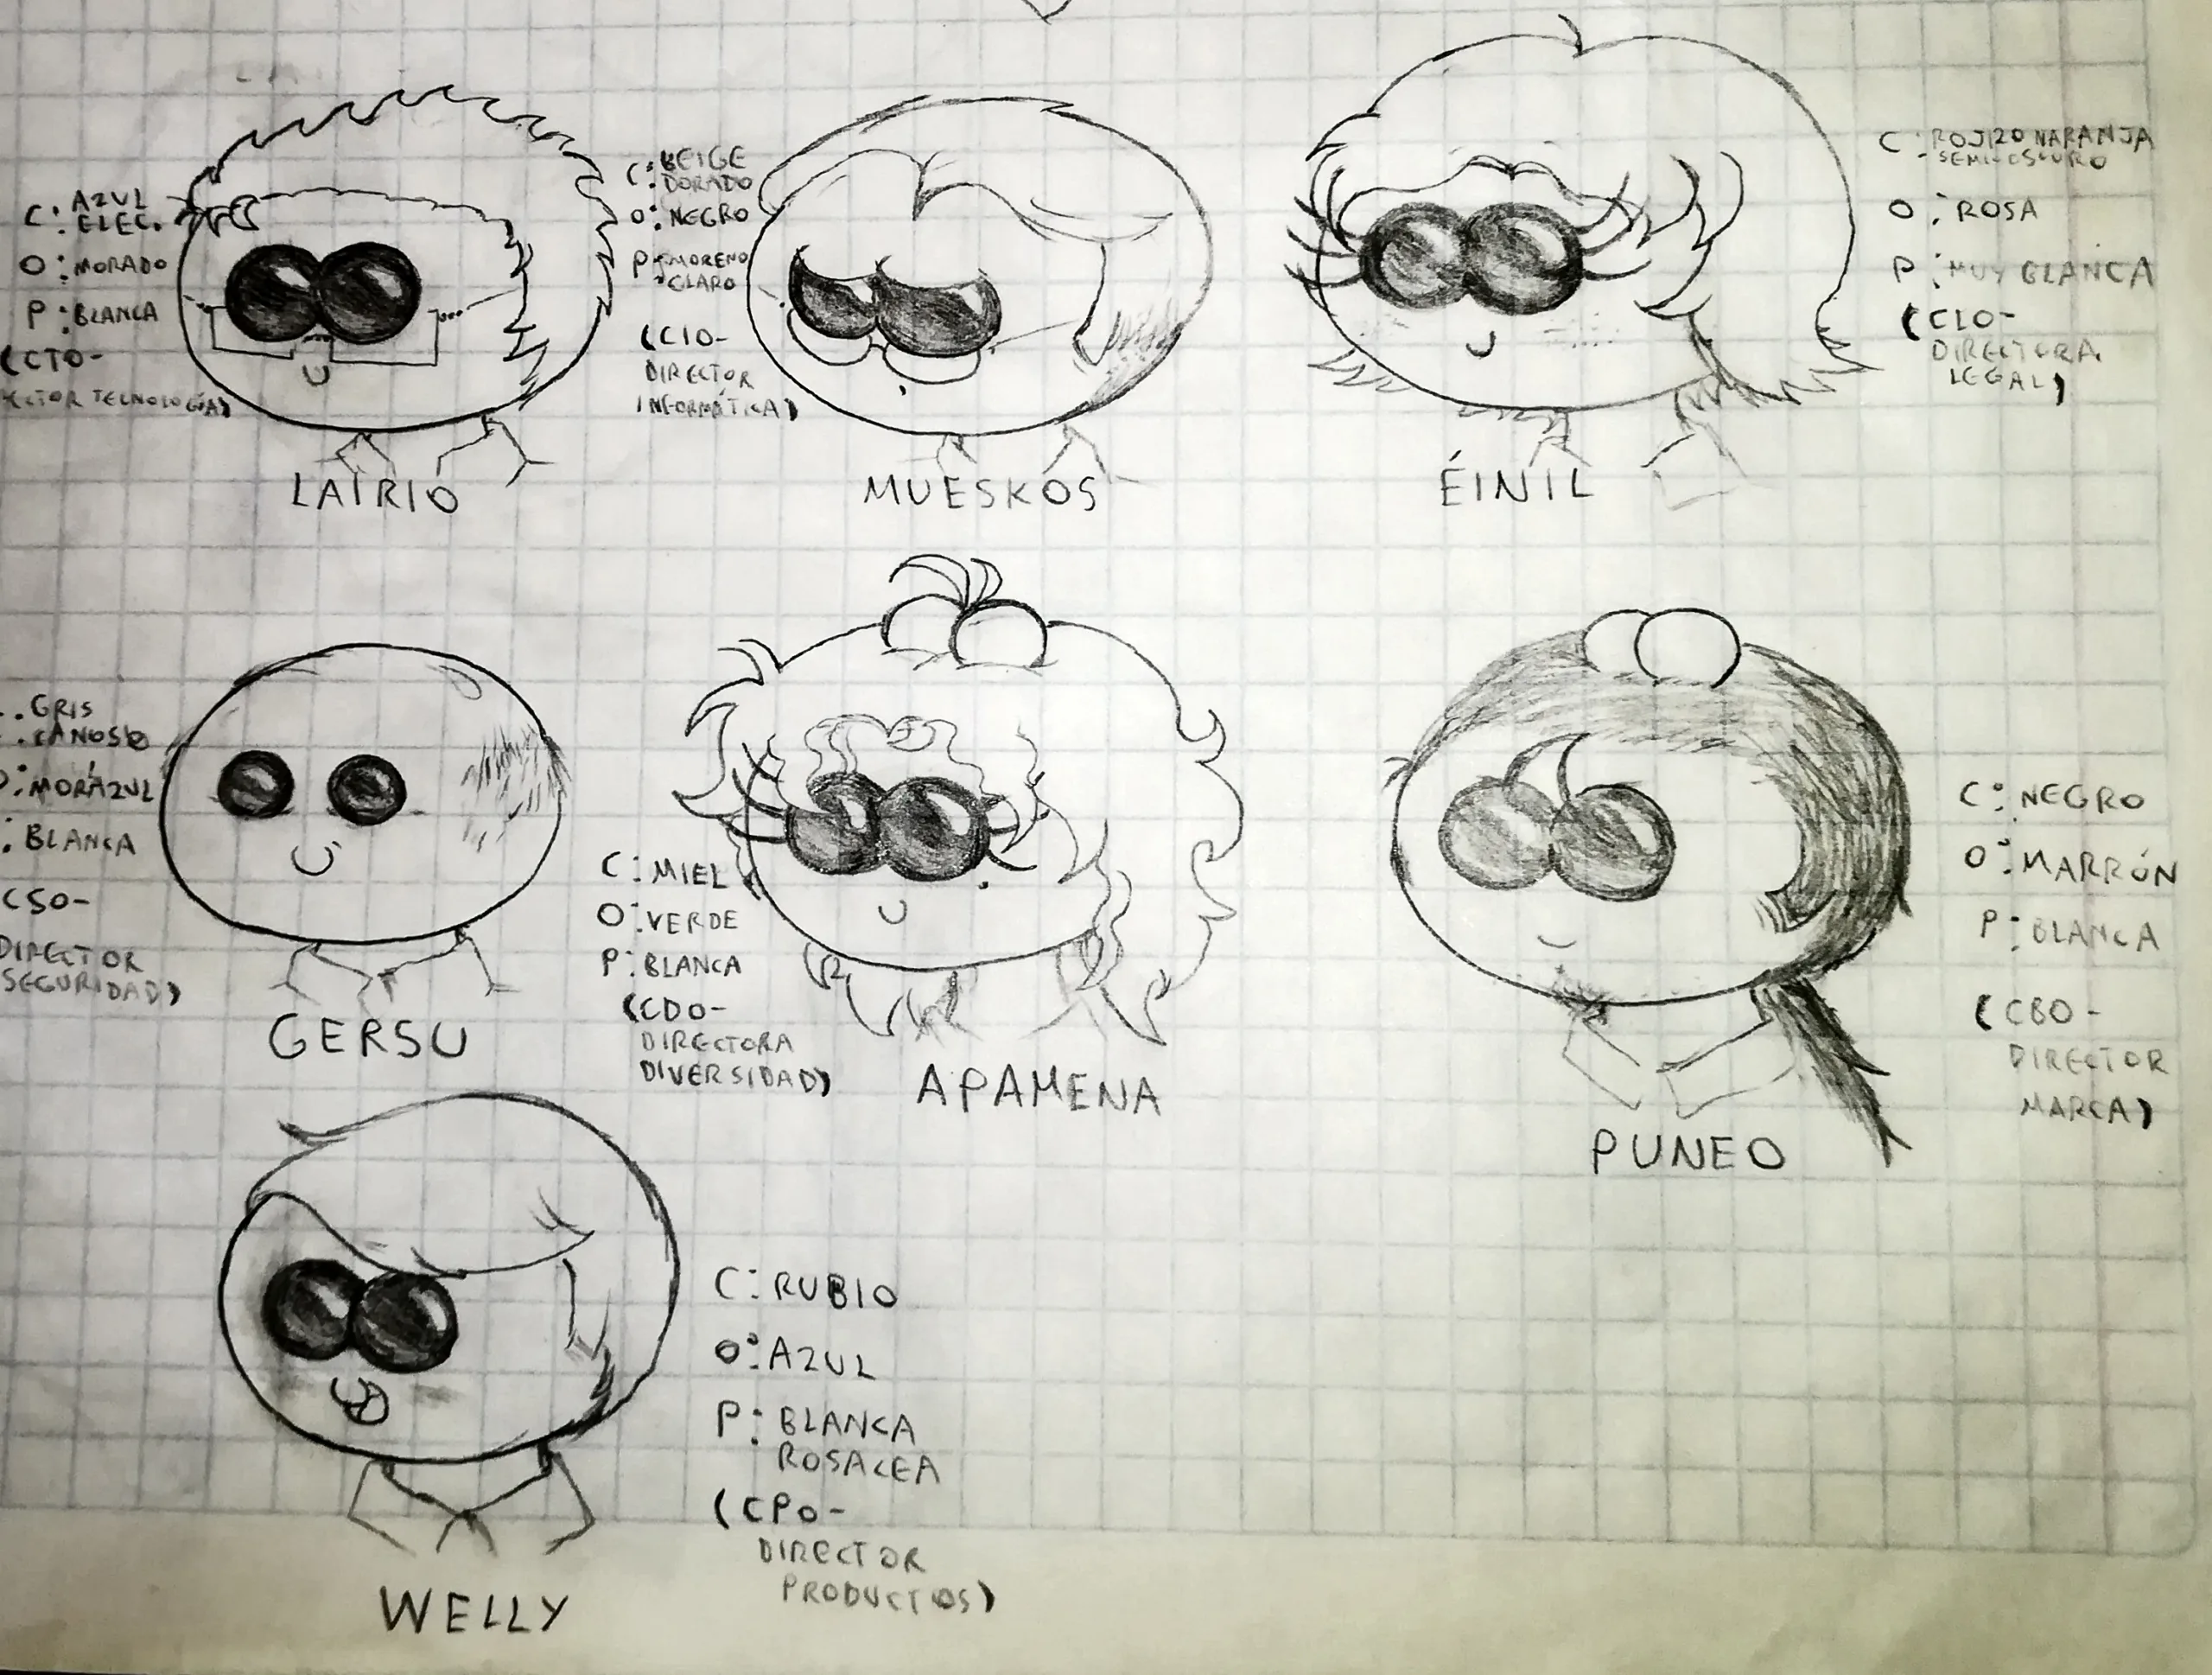 C: AZUL
ELEC.
O: MORADO
P: BLANCA
(CTO-
ECTOR TECNOLOGÍA)
LAIRIO
C: BEIGE
DORADO
O: NEGRO
P: MORENO
CLARO
(CIO-
DIRECTOR
INFORMÁTICA)
MUESKOS
C: ROJIZO NARANJA
SEMI-OSCURO
O: ROSA
P: MUY BLANCA
(CLO-
DIRECTORA
LEGAL)
ÉINIL
GRIS
CANOSO
: MORÁZUL
: BLANCA
CSO-
DIRECTOR
SEGURIDAD)
GERSU
C: MIEL
O: VERDE
P: BLANCA
(CDO-
DIRECTORA
DIVERSIDAD)
APAMENA
C: NEGRO
O: MARRÓN
P: BLANCA
(CBO-
DIRECTOR
MARCA)
PUNEO
C: RUBIO
O: AZUL
P: BLANCA
ROSACEA
(CPO-
DIRECTOR
PRODUCTOS)
WELLY